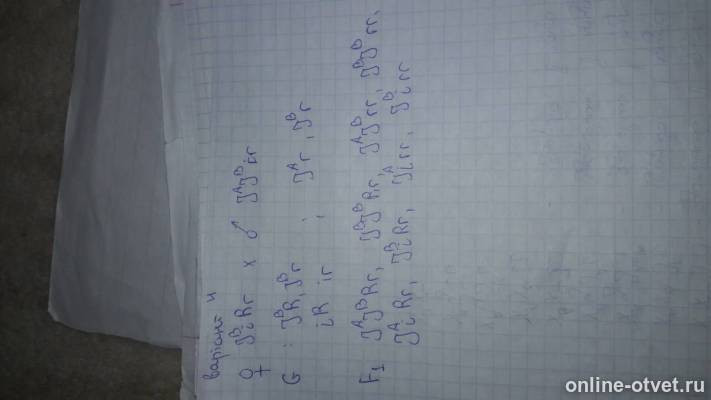 варіант 4
♀ JᴮiRr x ♂ JᴬJᴮrr
G : JᴮR, Jᴮr ; Jᴬr, Jᴮr
iR ir
F₁ JᴬJᴮRr, JᴮJᴮRr, JᴬJᴮrr, JᴮJᴮrr,
JᴬiRr, JᴮiRr, Jᴬirr, Jᴮirr
online-otvet.ru